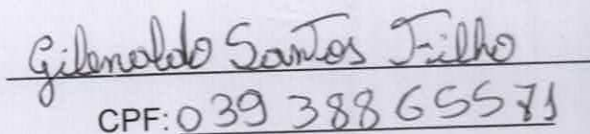 Gilenoldo Santos Filho
CPF: 039 388 655 71